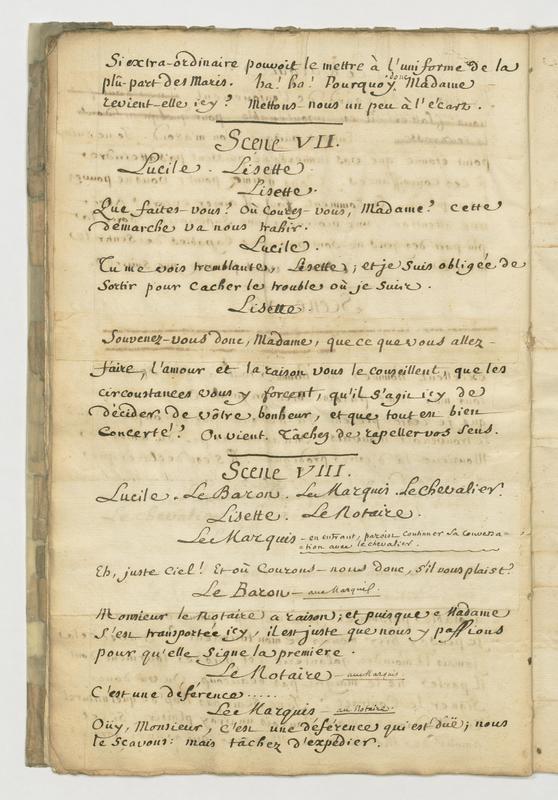 Si extra-ordinaire pouvoit le mettre à l'uniforme de la
plû-part des Maris. ha! ha! Pourquoy donc Madame
revient-elle icy? Mettons nous un peu à l'écart.
Scene VII.
Lucile. Lisette.
Lisette.
Que faites-vous? Où courez-vous, Madame? cette
démarche va nous trahir.
Lucile.
Tu me vois tremblante, Lisette; et je suis obligée de
sortir pour cacher le trouble où je suis.
Lisette.
Souvenez-vous donc, Madame, que ce que vous allez-
faire, l'amour et la raison vous le conseillent, que les
circonstances vous y forcent, qu'il s'agit icy de
décider de vôtre bonheur, et que tout est bien
concerté? On vient. Tachez de rapeller vos sens.
Scene VIII.
Lucile. Le Baron. Le Marquis. Le chevalier.
Lisette. Le Notaire.
Le Marquis - en entrant, paroist continuer sa conversa=
=tion avec le chevalier.
Eh, juste Ciel! Et où Courons-nous donc, s'il vous plaist?
Le Baron - au Marquis.
Monsieur le Notaire a raison; et puisque Madame
s'est transportée icy, il est juste que nous y passions
pour qu'elle signe la premiere.
Le Notaire - au Marquis.
C'est une déférence.....
Le Marquis - au Notaire.
Oüy, Monsieur, c'est une déférence qui est düe; nous
le scavons: mais tâchez d'expédier.